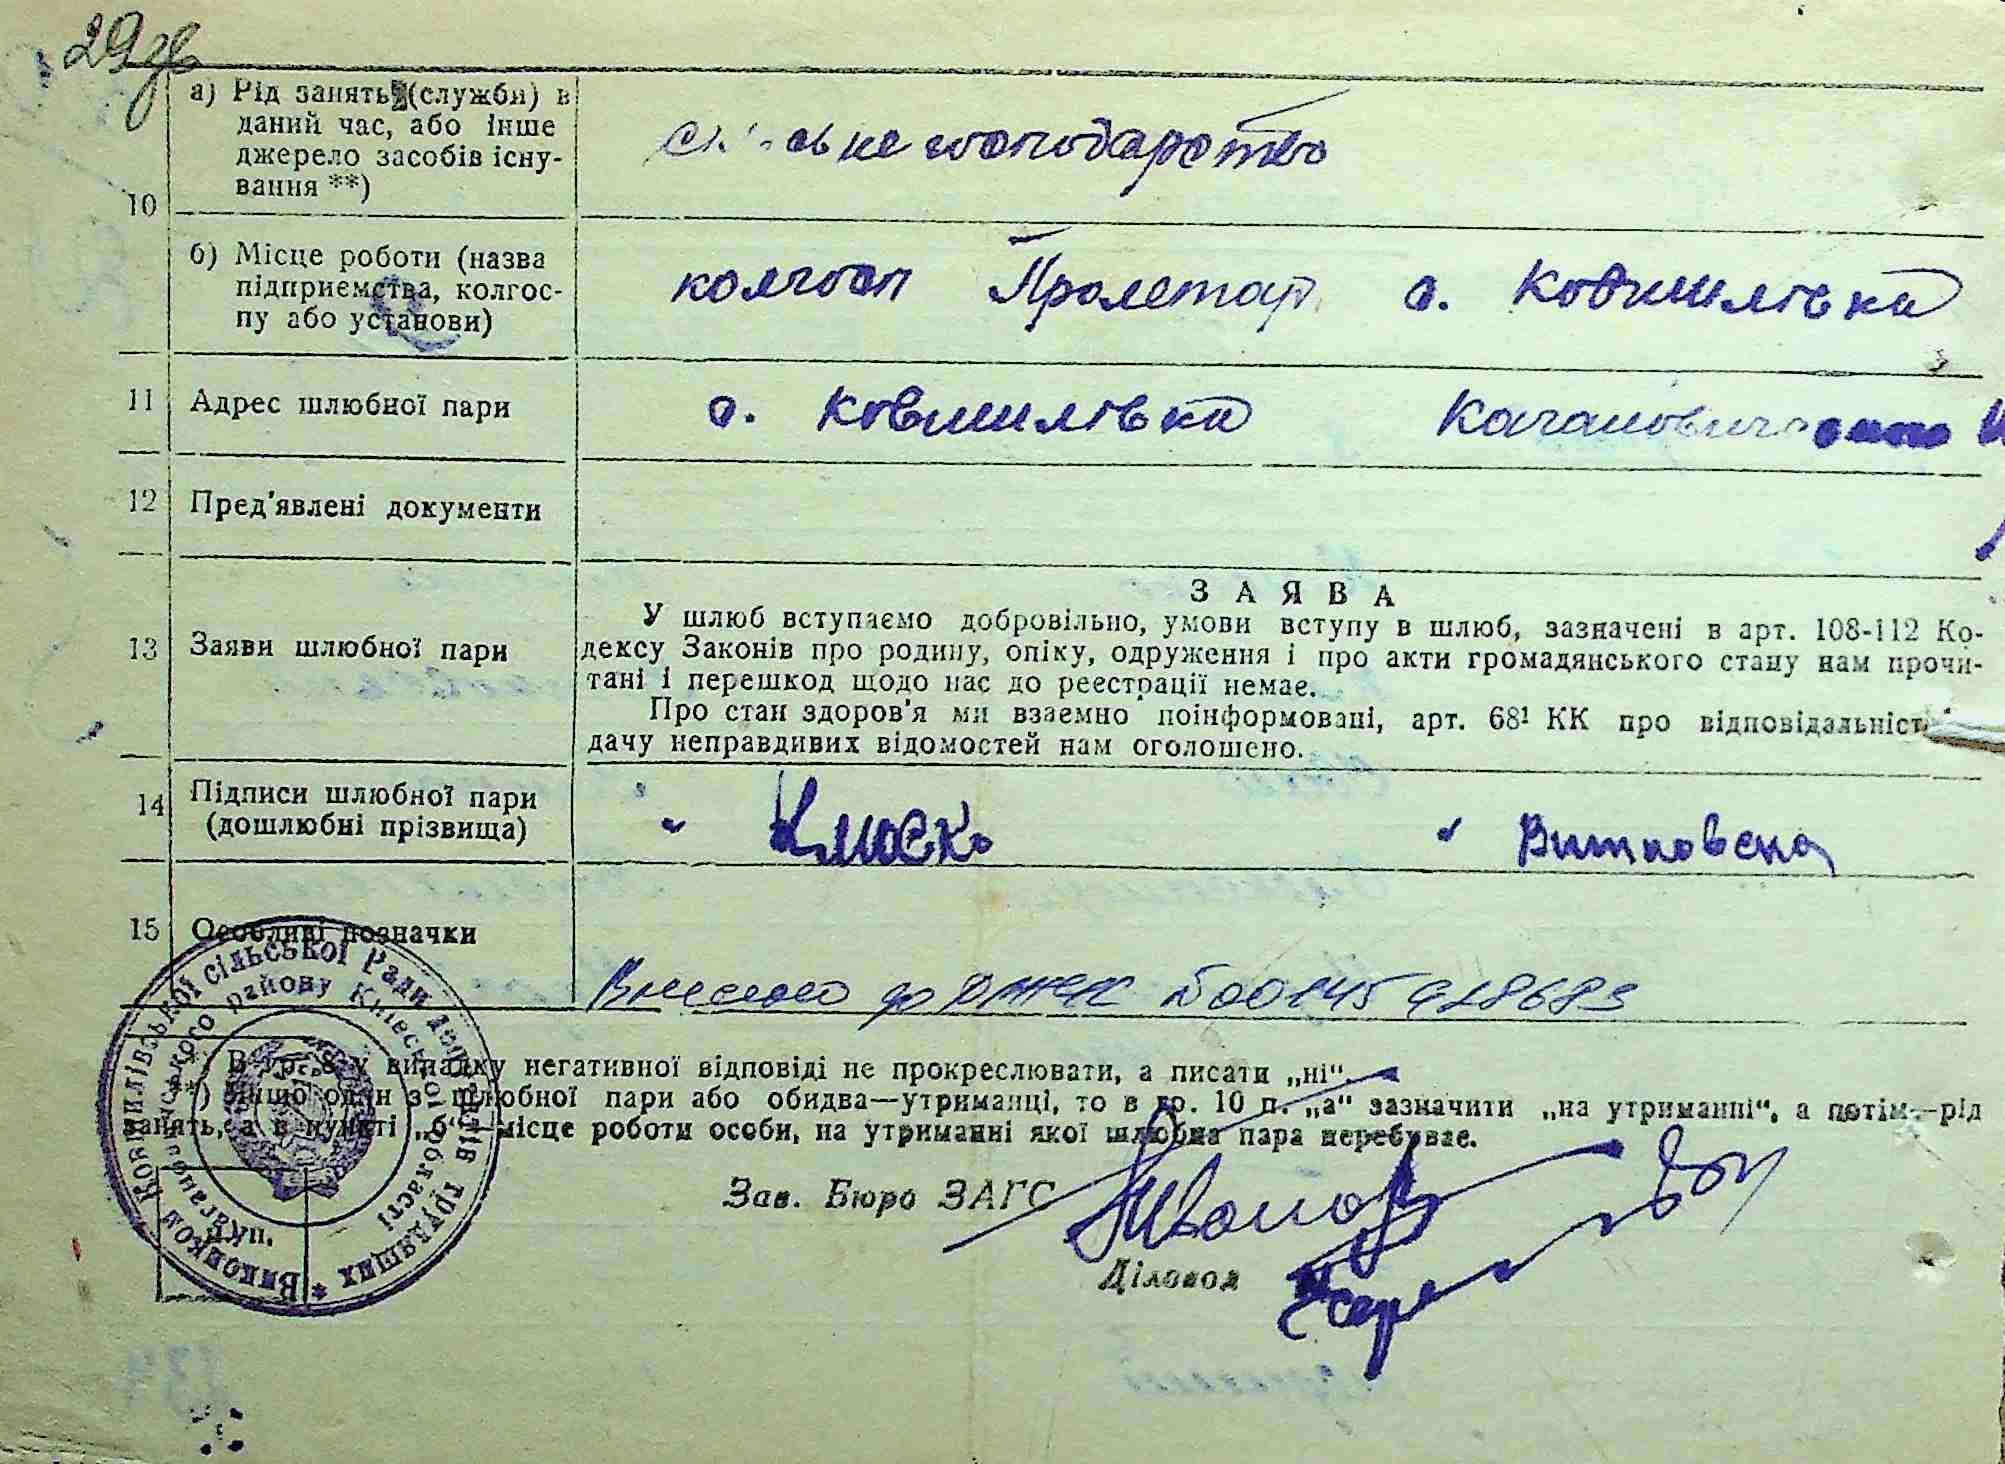 29зв
а) Рід занять (служби) в
даний час, або інше
джерело засобів існу-
вання **)
10
господарство
б) Місце роботи (назва
підприємства, колгос-
пу або установи)
колгосп Пролетар с. Ковшилівка
11 Адрес шлюбної пари
с. Ковшилівка
12 Пред'явлені документи
ЗАЯВА
13 Заяви шлюбної пари
У шлюб вступаємо добровільно, умови вступу в шлюб, зазначені в арт. 108-112 Ко-
дексу Законів про родину, опіку, одруження і про акти громадянського стану нам прочи-
тані і перешкод щодо нас до реєстрації немає.
Про стан здоров'я ми взаємно поінформовані, арт. 68¹ КК про
дачу неправдивих відомостей нам оголошено.
14 Підписи шлюбної пари
(дошлюбні прізвища)
Клюско Витковска
15 Особливі позначки
Внесено до
Виконком Ковшилівської сільської Ради депутатів трудящих *
Кагановичського району Київської області
у випадку негативної відповіді не прокреслювати, а писати „ні".
**) Якщо один з шлюбної пари або обидва—утриманці, то в гр. 10 п. „а" зазначити „на утриманні", а потім—рід
занять, а в пункті „б"—місце роботи особи, на утриманні якої шлюбна пара перебуває.
Зав. Бюро ЗАГС
Діловод